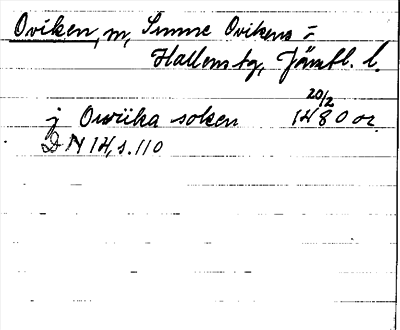 Oviken, m, Sunne Ovikens o
Hallens tg, Jämtl. l.
20/2
j Owiika soken 1480 or.
DN 14, s. 110